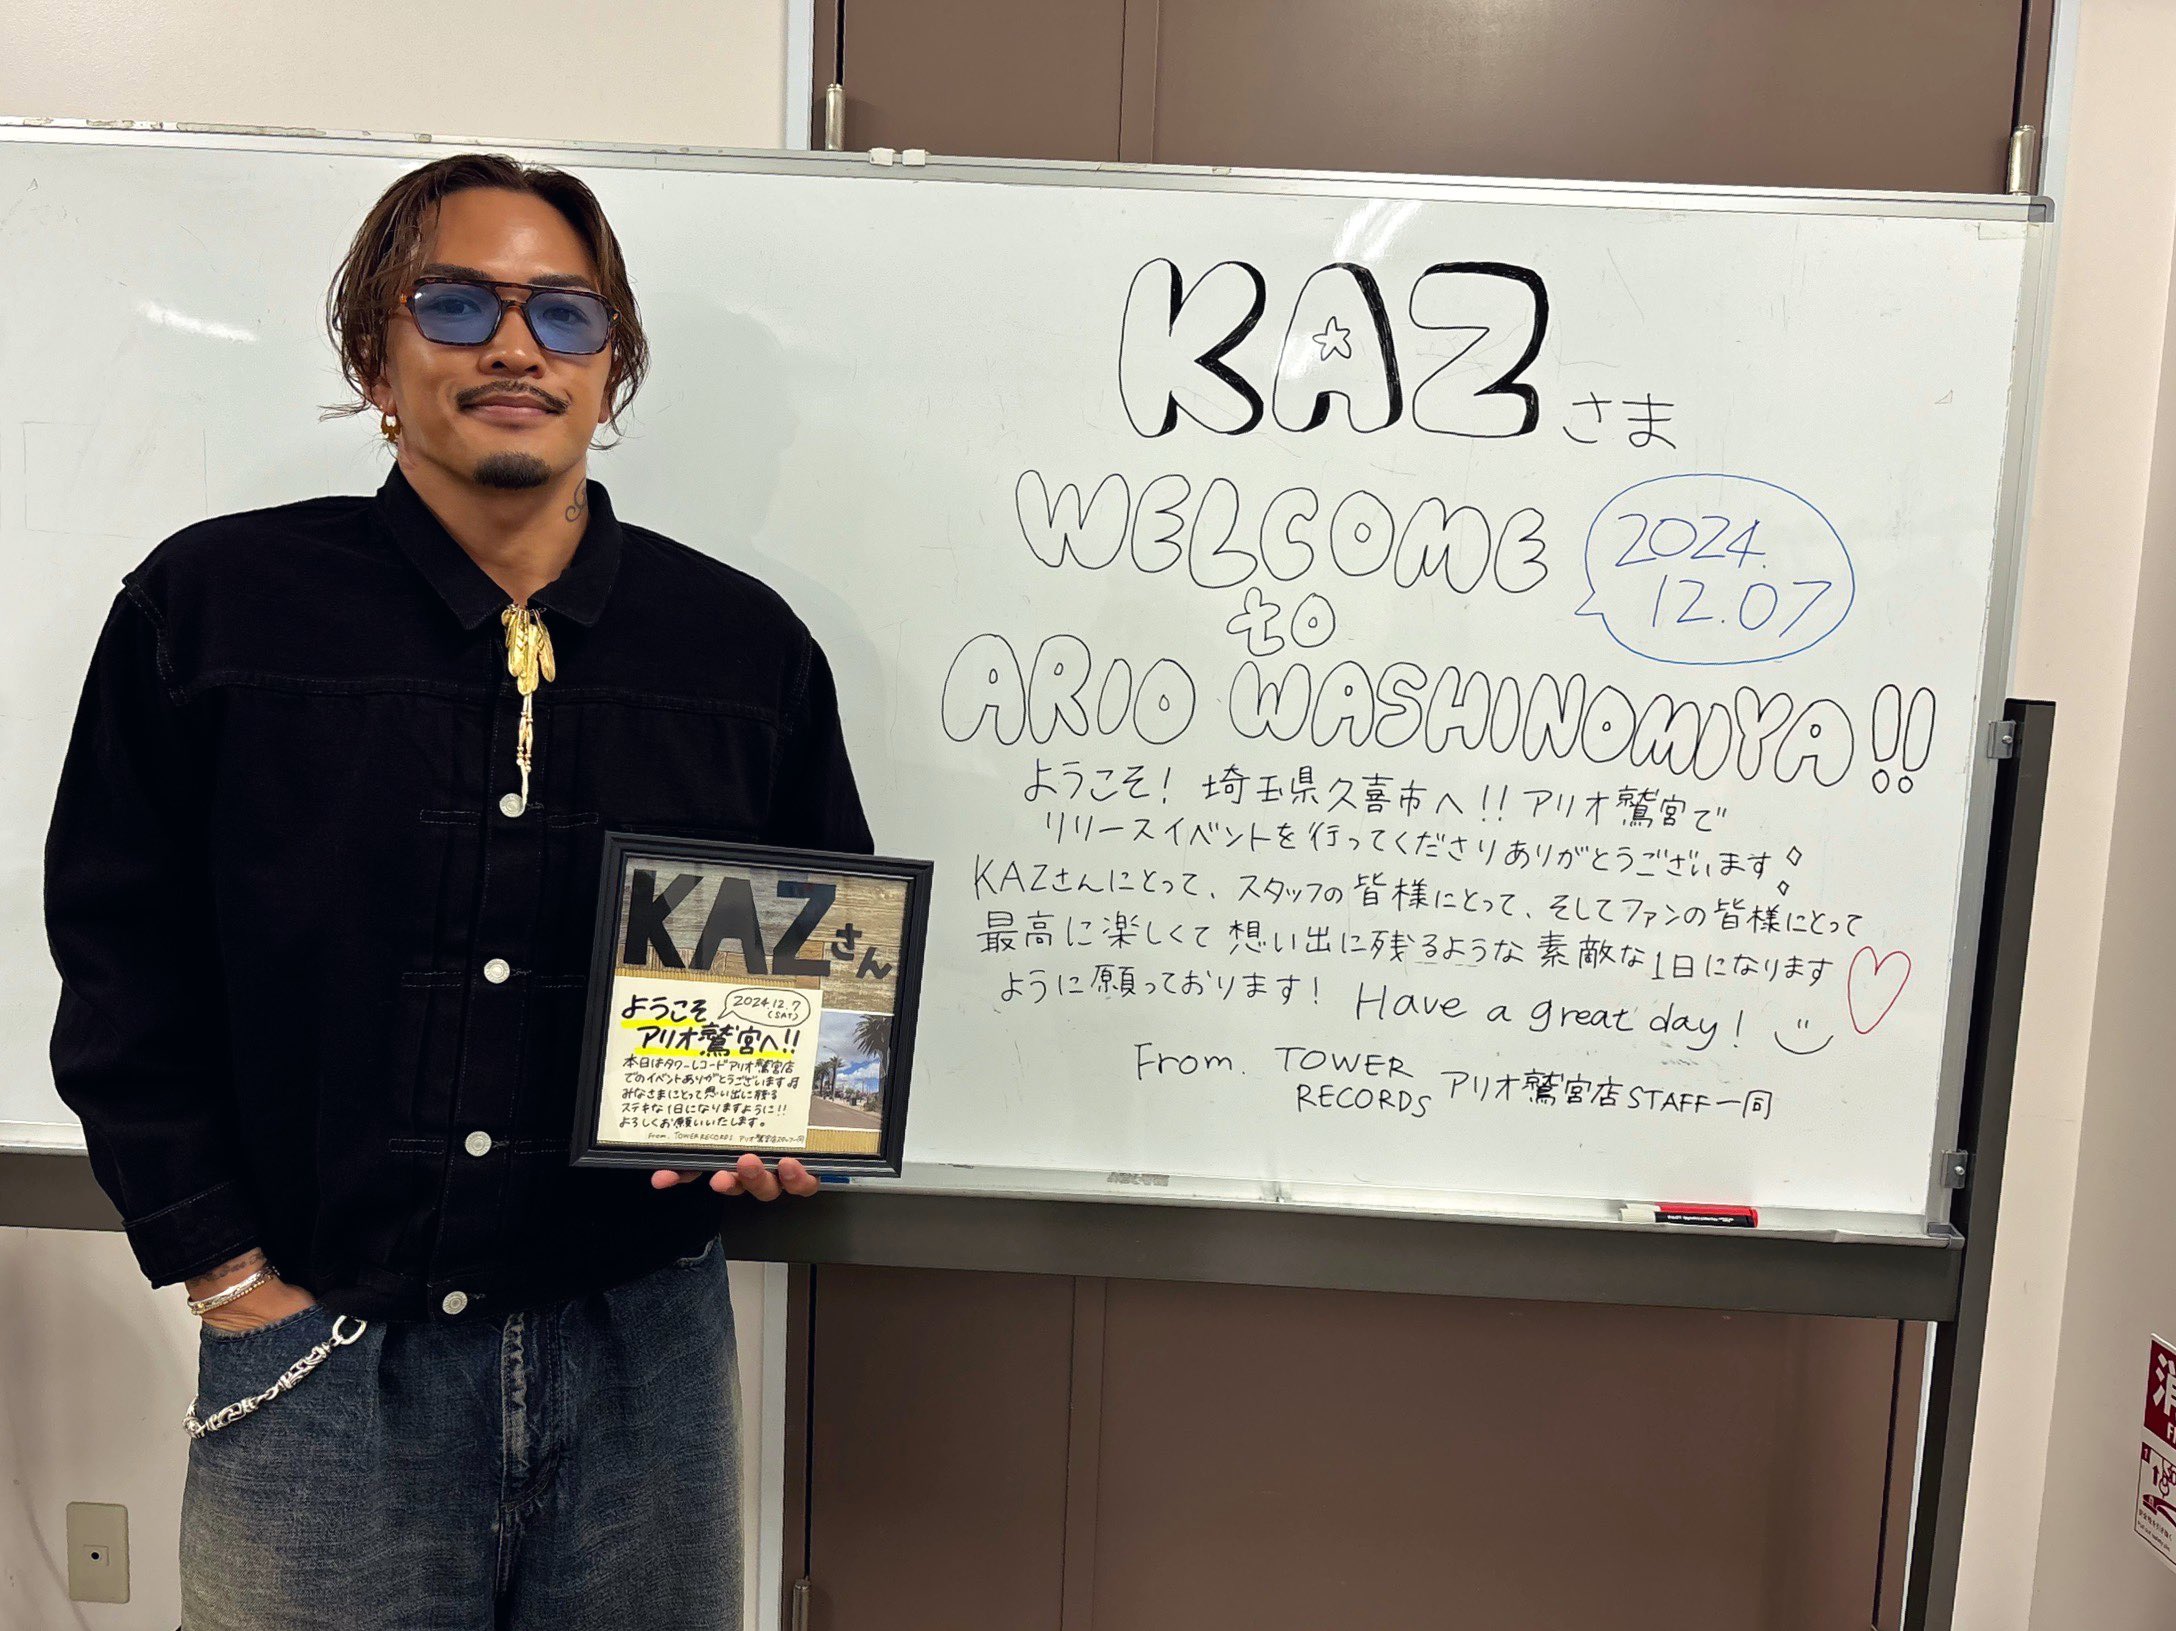 KAZさま
WELCOME
to
2024.
12.07
ARIO WASHINOMIYA!!
ようこそ! 埼玉県久喜市へ!! アリオ鷲宮で
リリースイベントを行ってくださりありがとうございます
KAZさんにとって、スタッフの皆様にとって、そしてファンの皆様にとって
最高に楽しくて想い出に残るような素敵な1日になります
ように願っております! Have a great day!
From. TOWER
RECORDS アリオ鷲宮店STAFF一同
KAZさん
ようこそ
2024.12.7
(SAT)
アリオ鷲宮へ!!
本日はタワーレコードアリオ鷲宮店
でのイベントありがとうございます♬
みなさまにとって思い出に残る
ステキな1日になりますように!!
よろしくお願いいたします。
From. TOWER RECORDS アリオ鷲宮店スタッフ一同
消
1